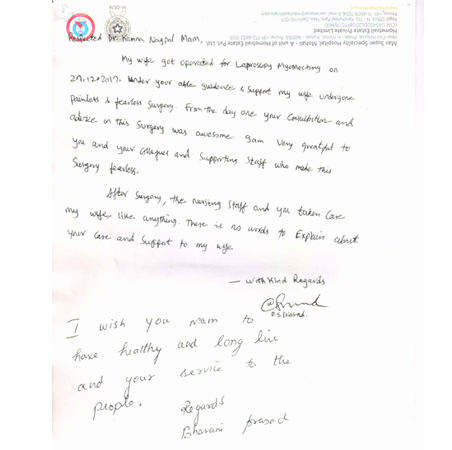 Respected Dr. Kamna Nagpal Mam,
My wife got operated for Laproscopy Myomectomy on
27.12.2017. Under your able guidence & Support my wife undergone
painless & fearless Surgery. From the day one your Consultation and
advice on this Surgery was awesome. I am very greatful to
you and your Collegues and Supporting Staff who make this
Surgery fearless.
After Surgery, the nursing Staff and you taken Care
my wife like anything. There is no words to Explain about
your Care and Support to my wife
— With Kind Regards
I wish you Mam to
have healthy and long live
and your service to the
people.
Regards
Bhavani prasad